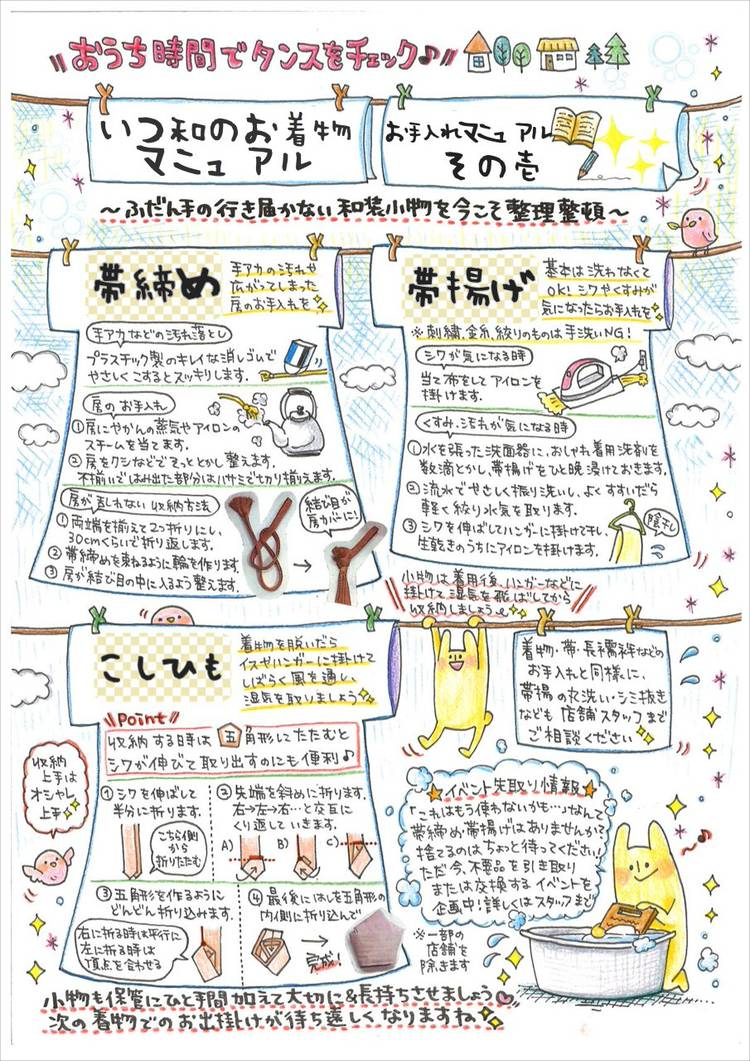 おうち時間でタンスをチェック♪
いつ和のお着物
マニュアル
お手入れマニュアル
その壱
～ふだん手の行き届かない和装小物を今こそ整理整頓～
帯締め
手アカの汚れや
広がってしまった
房のお手入れを
手アカなどの汚れ落とし
プラスチック製のキレイな消しゴムで
やさしくこするとスッキリします。
房のお手入れ
①房にやかんの蒸気やアイロンの
スチームを当てます。
②房をクシなどでそっととかし整えます。
不揃いではみ出た部分はハサミで切り揃えます。
房が乱れない収納方法
①両端を揃えて2つ折りにし、
30cmくらいで折り返します。
②帯締めを束ねるように輪を作ります。
③房が結び目の中に入るよう整えます。
結び目が
房カバーに!
帯揚げ
基本は洗わなくて
OK!シワやくすみが
気になったらお手入れを
※刺繍、金糸、絞りのものは手洗いNG!
シワが気になる時
当て布をしてアイロンを
掛けます。
くすみ、汚れが気になる時
①水を張った洗面器に、おしゃれ着用洗剤を
数滴とかし、帯揚げをひと晩浸けておきます。
②流水でやさしく振り洗いし、よくすすいだら
軽く絞り水気を取ります。
③シワを伸ばしてハンガーに掛けて干し、
生乾きのうちにアイロンを掛けます。
陰干し
小物は着用後、ハンガーなどに
掛けて湿気を飛ばしてから
収納しましょう
こしひも
着物を脱いだら
イスやハンガーに掛けて
しばらく風を通し、
湿気を取りましょう
Point
収納する時は五角形にたたむと
シワが伸びて取り出すのにも便利♪
①シワを伸ばして
半分に折ります。
こちら側
から
折りたたむ
②先端を斜めに折ります。
右→左→右…と交互に
くり返していきます。
A)
B)
C)
③五角形を作るように
どんどん折り込みます。
右に折る時は平行に
左に折る時は
頂点を合わせる
④最後にはしを五角形の
内側に折り込んで
完成!
収納
上手は
オシャレ
上手
着物・帯・長襦袢などの
お手入れと同様に、
帯揚の丸洗い・シミ抜き
なども店舗スタッフまで
ご相談ください
イベント先取り情報
「これはもう使わないかも…」なんて
帯締め、帯揚げはありませんか?
捨てるのはちょっと待ってください!
ただ今、不要品を引き取り
または交換するイベントを
企画中!詳しくはスタッフまで
※一部の
店舗を
除きます
小物も保管にひと手間加えて大切に&長持ちさせましょう
次の着物でのお出掛けが待ち遠しくなりますね